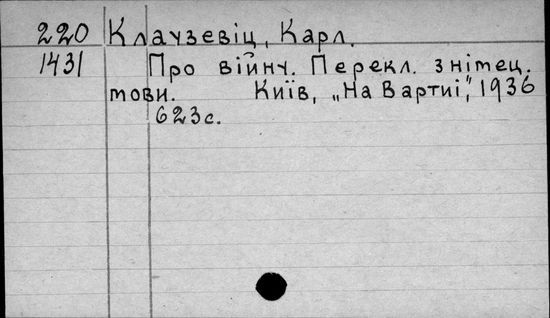 220 Клаузевіц, Карл.
1431 Про війну. Перекл. з німец.
мови. Київ, „На Варті“, 1936
623с.